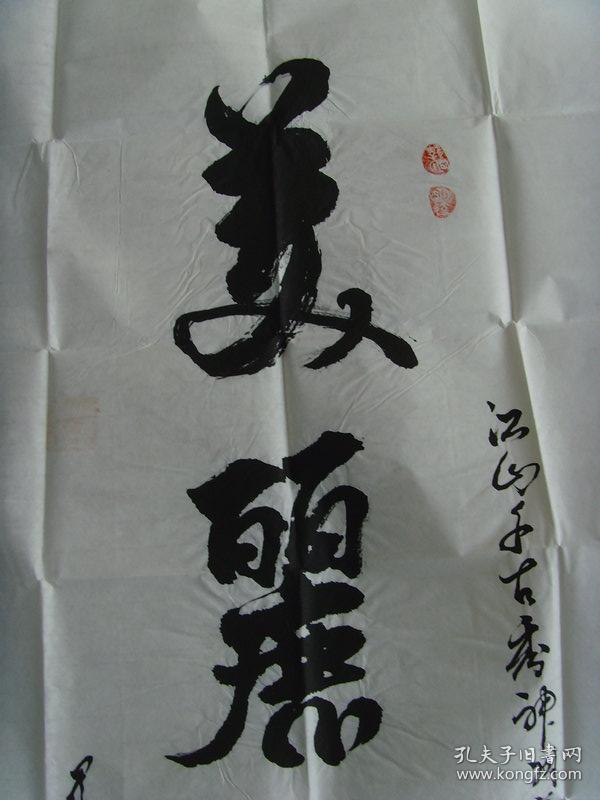 美麗
江山千古秀神州
孔夫子旧书网
www.kongfz.com